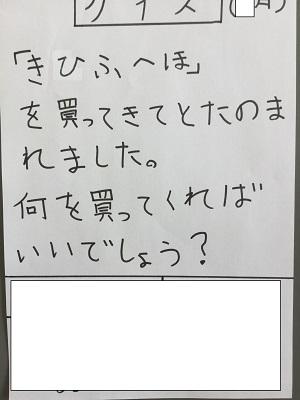 クイズ
「きひふへほ」
を買ってきてとたのま
れました。
何を買ってくれば
いいでしょう?